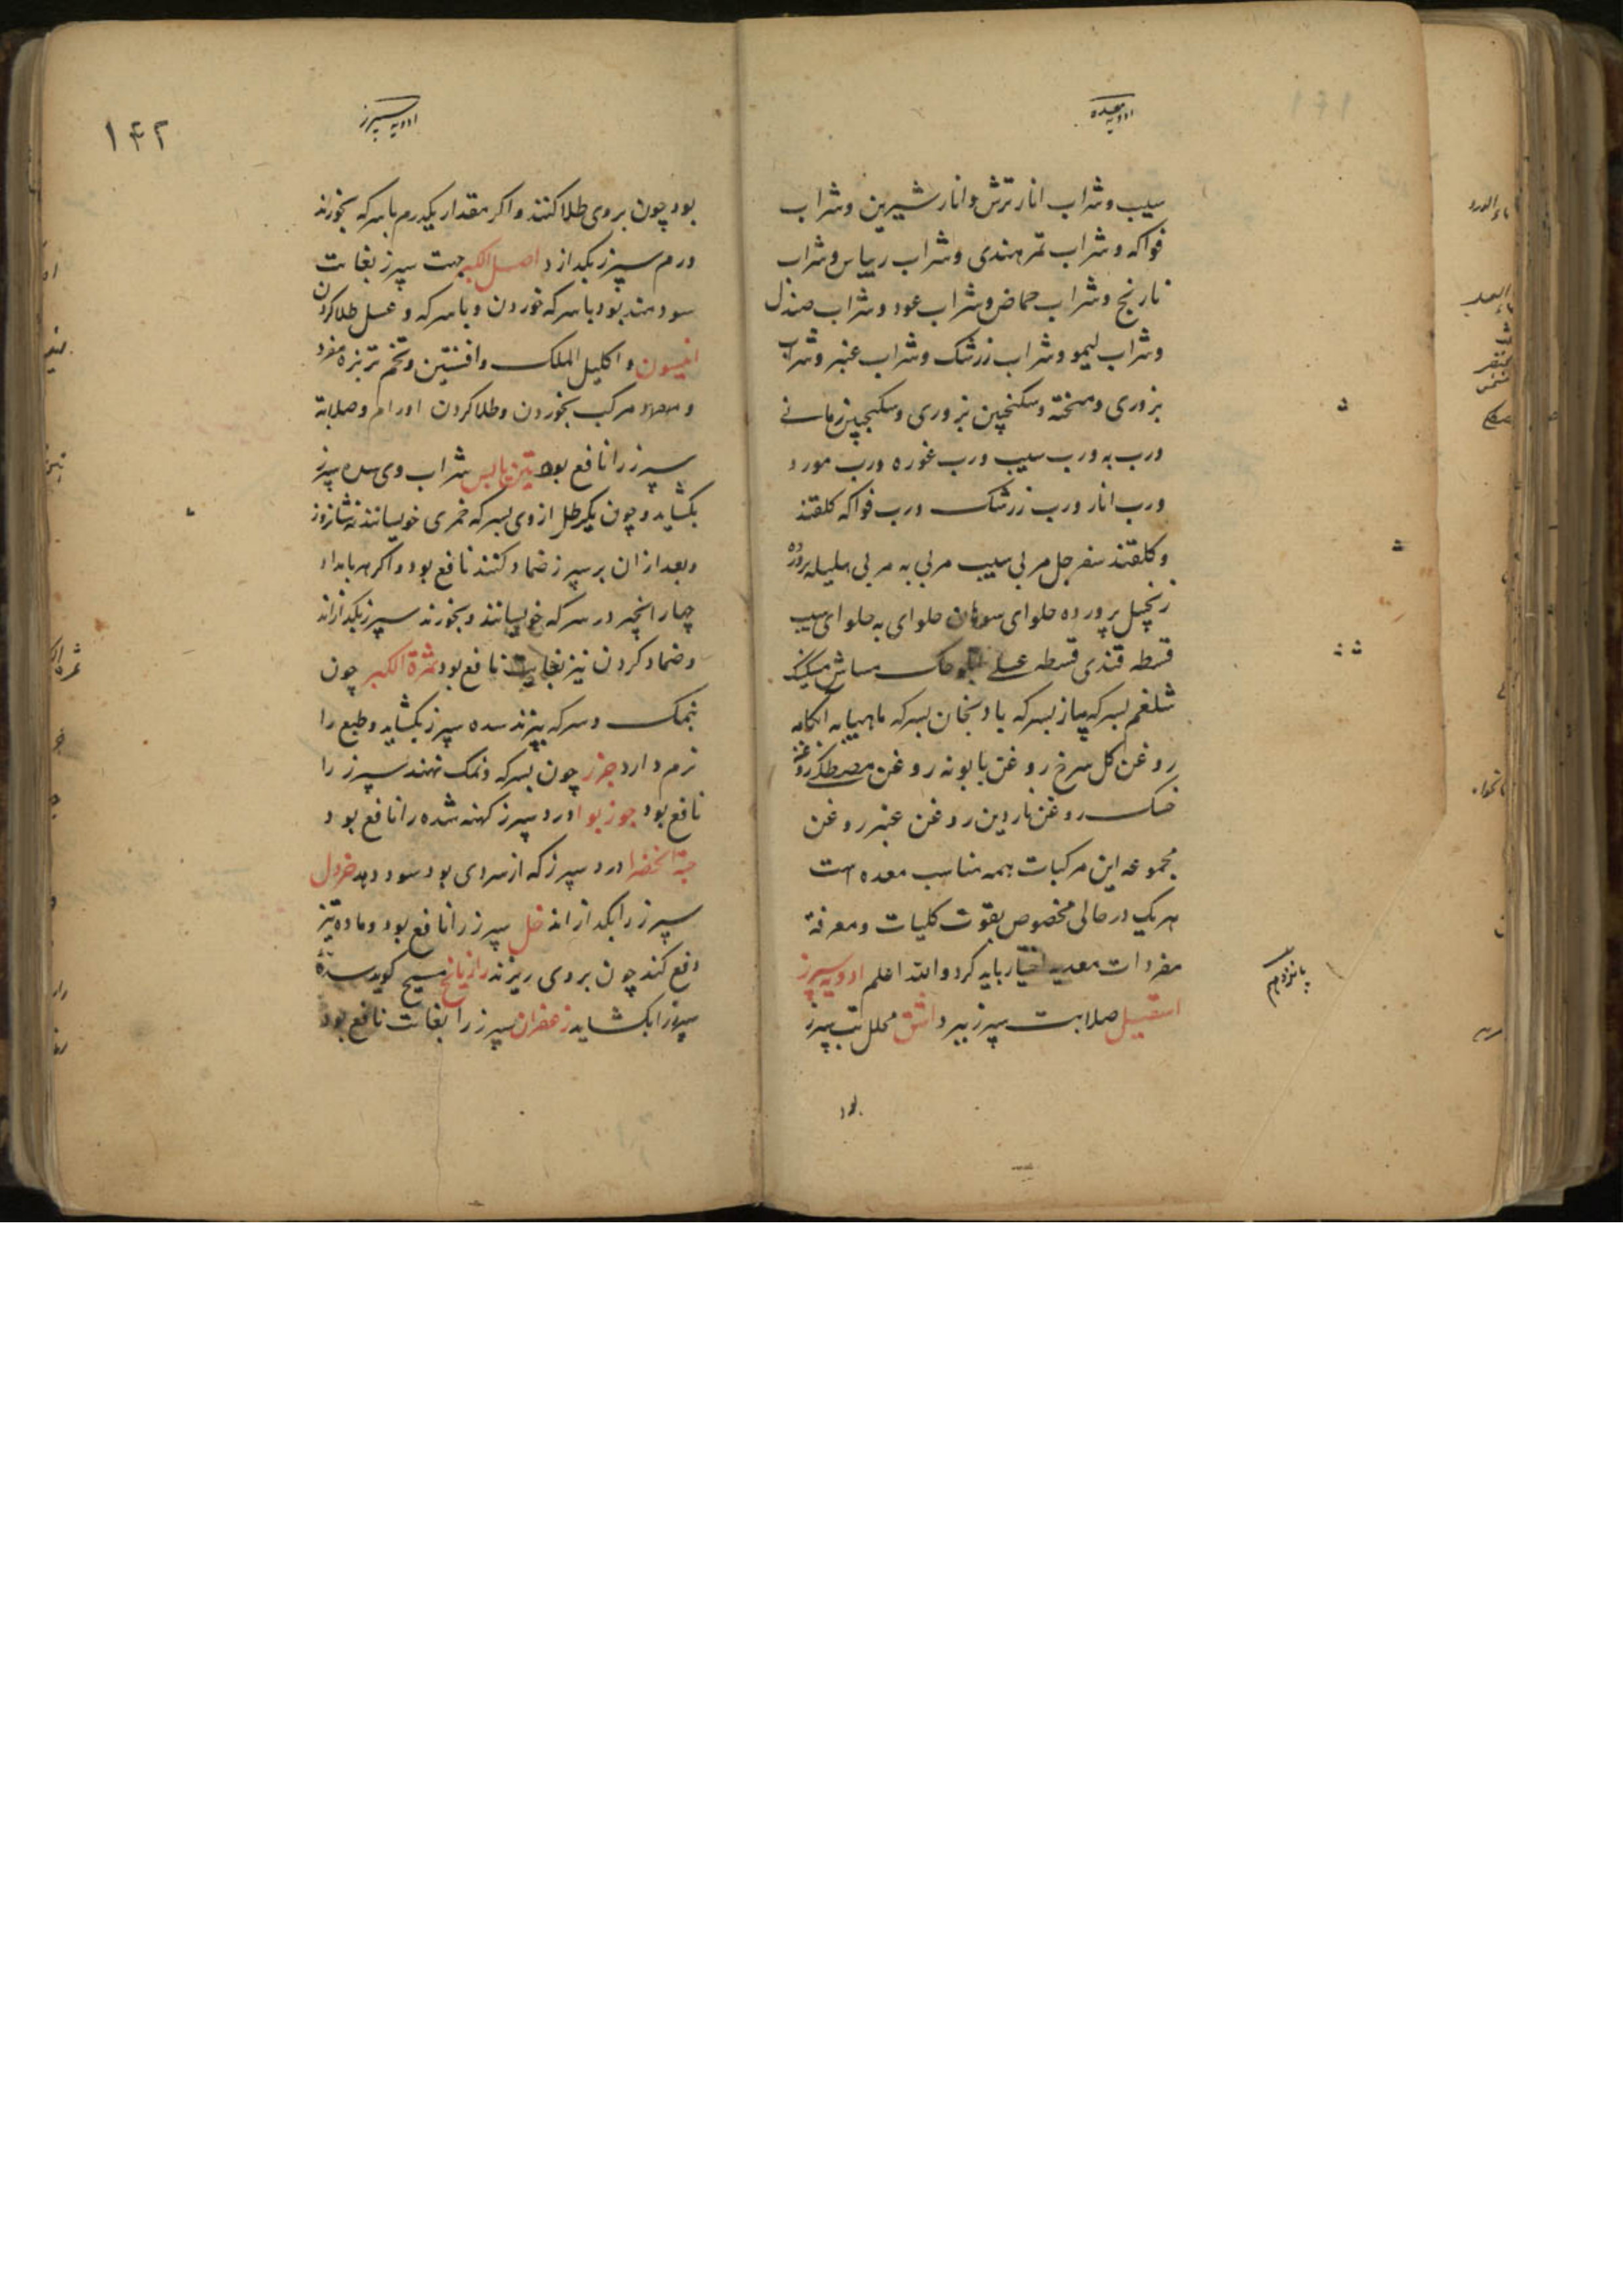 ادویه معده
سیب و شراب انار ترش و انار شیرین و شراب
فواکه و شراب تمر هندی و شراب ریباس و شراب
نارنج و شراب حماض و شراب عود و شراب صندل
و شراب لیمو و شراب زرشک و شراب عنبر و شراب
بزوری و میبخته و سکنجبین بزوری و سکنجبین رمانے
و رب به و رب سیب و رب غوره و رب مورد
و رب انار و رب زرشک و رب فواکه کلقند
و کلقند سفرجل مربی سیب مربی به مربی هلیله پرورده
زنجبیل پرورده حلوای سوهان حلوای به حلوای سیب
قسطه قندی قسطه عسلے
شلغم بسرکه پیاز بسرکه بادنجان بسرکه ماهیابه ابکامه
روغن کل سرخ روغن بابونه روغن مصطکے روغن
خسک روغن ناردین روغن عنبر روغن
مجموعه این مرکبات همه مناسب معده است
هر یک در حالی مخصوص بقوت کلیات و معرفة
مفردات معدیه اختیار باید کرد و الله اعلم ادویه سپرز
اسقیل صلابت سپرز ببرد اشق محلل سپرز
پانزدهم
بود
ادویه سپرز
۱۴۲
بود چون بروی طلا کنند و اکر مقدار یکدرم با سرکه بخورند
ورم سپرز بکدازد اصل الکبر جهت سپرز بغایت
سودمند بود با سرکه خوردن و با سرکه و عسل طلا کردن
انیسون و اکلیل الملک و افسنتین و تخم تربزه مفرد
و مرکب بخوردن و طلا کردن اورام و صلابة
سپرز را نافع بود تین یابس شراب وی سده سپرز
بکشاید و چون یکرطل از وی بسرکه خمری خویسانند نه شباروز
و بعد از ان بر سپرز ضماد کنند نافع بود و اکر هر بامداد
چهار انجیر در سرکه خویسانند و بخورند سپرز بکدازاند
و ضماد کردن نیز بغایت نافع بود ثمرة الکبر چون
بنمک و سرکه بپزند سده سپرز بکشاید و طبع را
نرم دارد جزر چون بسرکه و نمک نهند سپرز را
نافع بود جوز بوا درد سپرز کهنه شده را نافع بود
حبة الخضرا درد سپرز که از سردی بود سود دهد خردل
سپرز را بکدازاند خل سپرز را نافع بود و ماده تیز
دفع کند چون بروی ریزند رازیانج مسیح کوید سده
سپرز را بکشاید زعفران سپرز را بغایت نافع بود